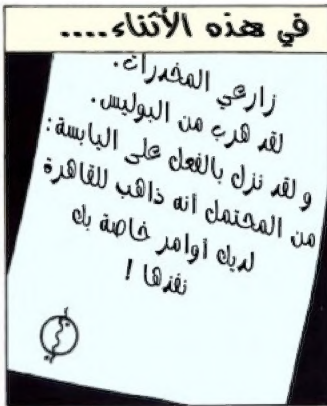 في هذه الأثناء....
زارعي المخدرات.
لقد هرب من البوليس.
و لقد نزل بالفعل على اليابسة:
من المحتمل أنه ذاهب للقاهرة
لديك أوامر خاصة بك
نفذها !